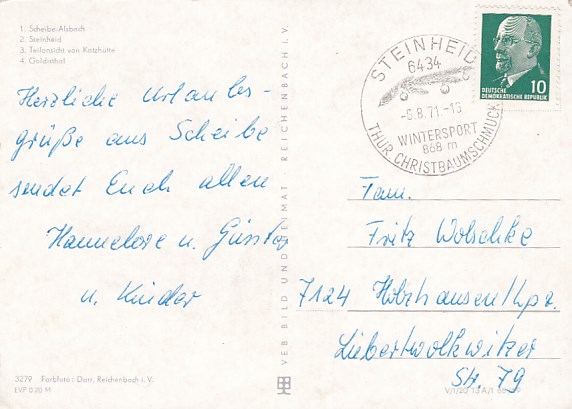 1. Scheibe-Alsbach
2. Steinheid
3. Teilansicht von Katzhütte
4. Goldisthal
Herzliche Urlaubs-
grüße aus Scheibe
sendet Euch allen
Hannelore u. Günter
u. Kinder
3279 Farbfoto: Darr, Reichenbach i. V.
EVP 0,20 M
VEB BILD UND HEIMAT REICHENBACH i. V.
STEINHEID
6434
-6.8.71-16
WINTERSPORT
868 m
THÜR. CHRISTBAUMSCHMUCK
10
DEUTSCHE
DEMOKRATISCHE REPUBLIK
Fam.
Fritz Wolschke
7124 Holzhausen/Lpz.
Liebertwolkwitzer
Str. 79